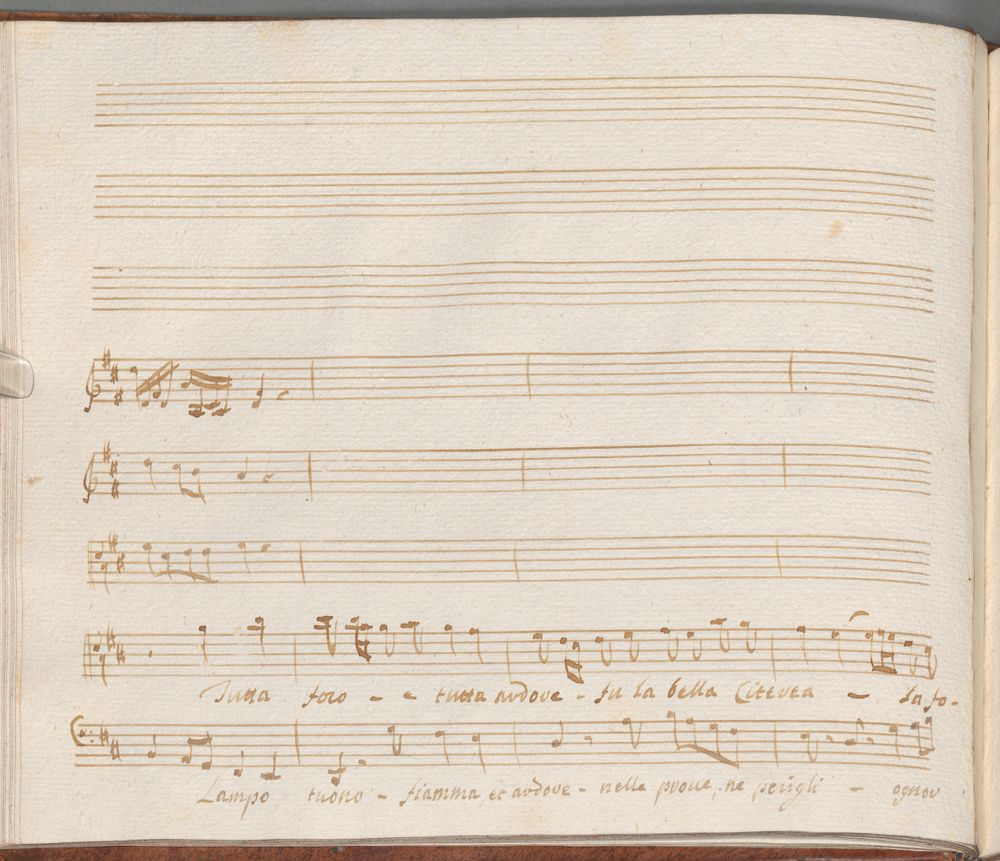 Tutta foco - e tutta ardore - fu la bella Citerea - la fo-
Lampo tuono - fiamma et ardore - nelle proue, ne perigli - ognor